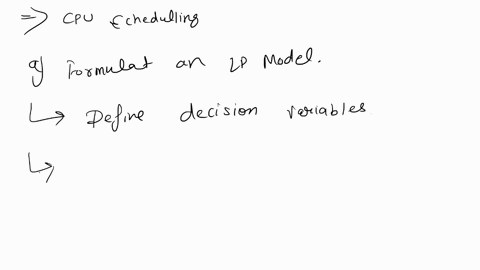 ⇒ CPU Schedulling
a) Formulat an LP Model.
↳ Define decision variables
↳